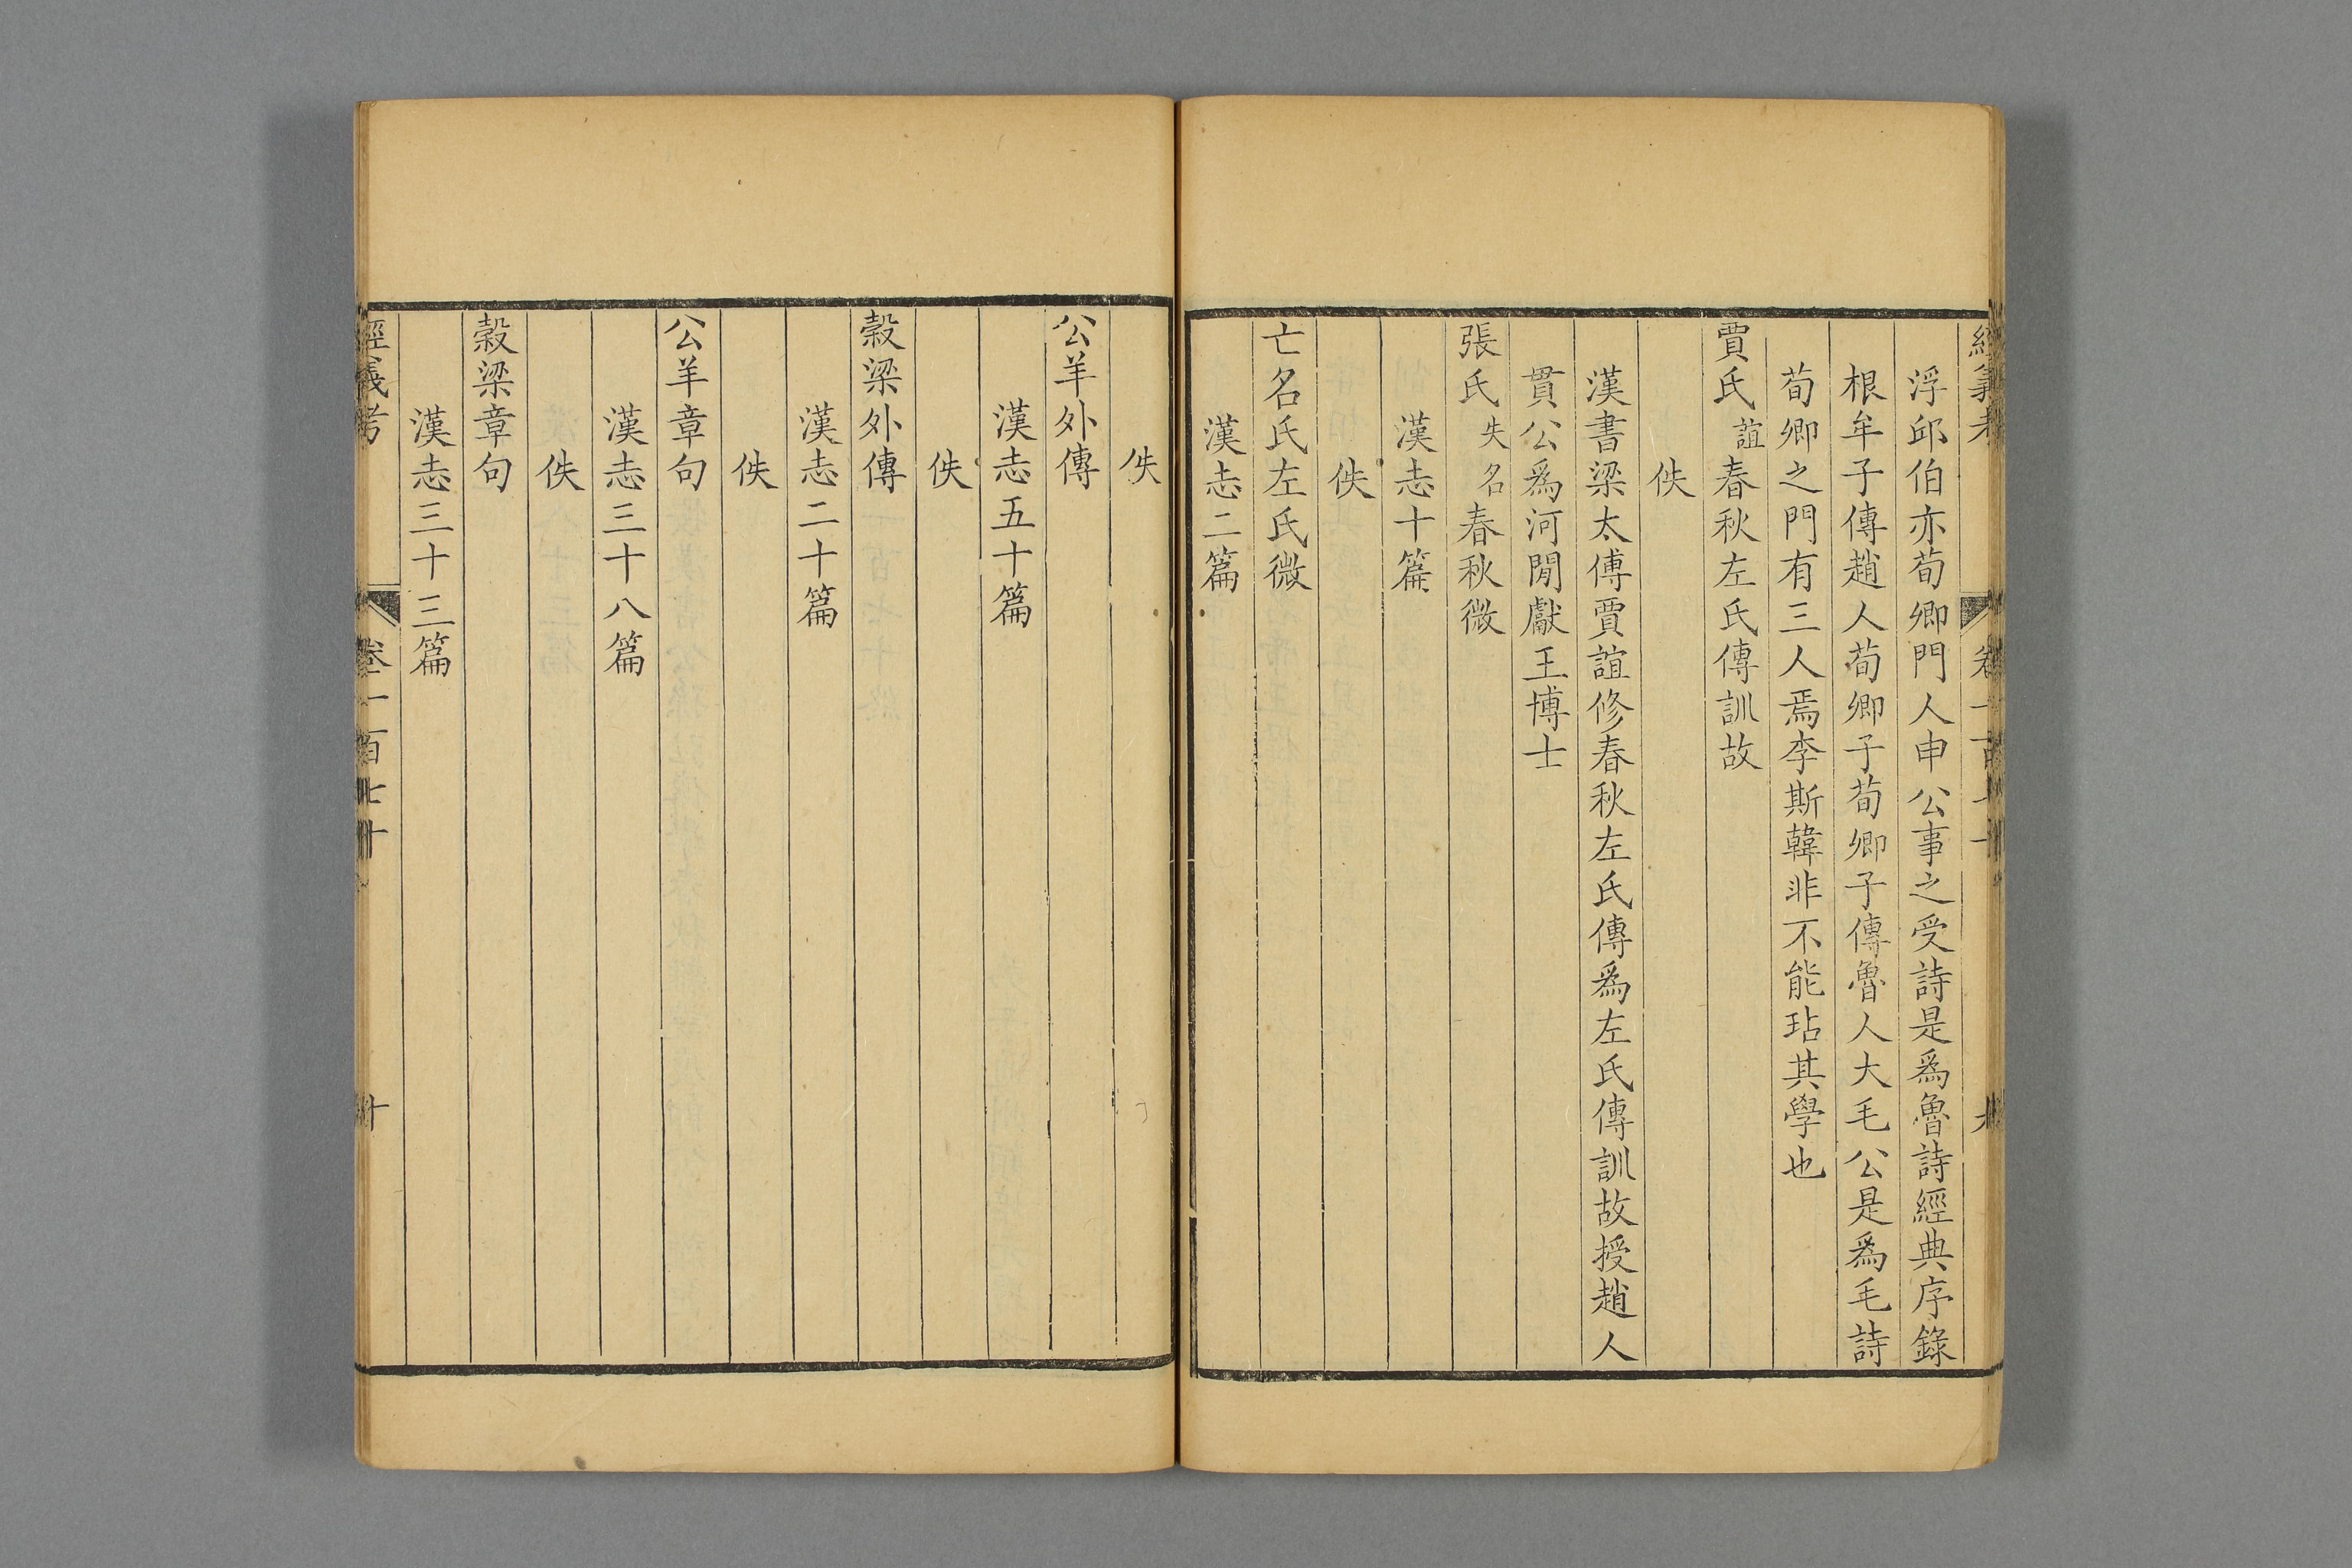 浮邱伯亦荀卿門人申公事之受詩是爲魯詩經典序錄
根牟子傳趙人荀卿子荀卿子傳魯人大毛公是爲毛詩
荀卿之門有三人焉李斯韓非不能玷其學也
賈氏誼春秋左氏傳訓故
佚
漢書梁太傅賈誼修春秋左氏傳爲左氏傳訓故授趙人
貫公爲河閒獻王博士
張氏失名春秋微
漢志十篇
佚
亡名氏左氏微
漢志二篇
佚
公羊外傳
漢志五十篇
佚
穀梁外傳
漢志二十篇
佚
公羊章句
漢志三十八篇
佚
穀梁章句
漢志三十三篇
經義考 卷一百七十 十